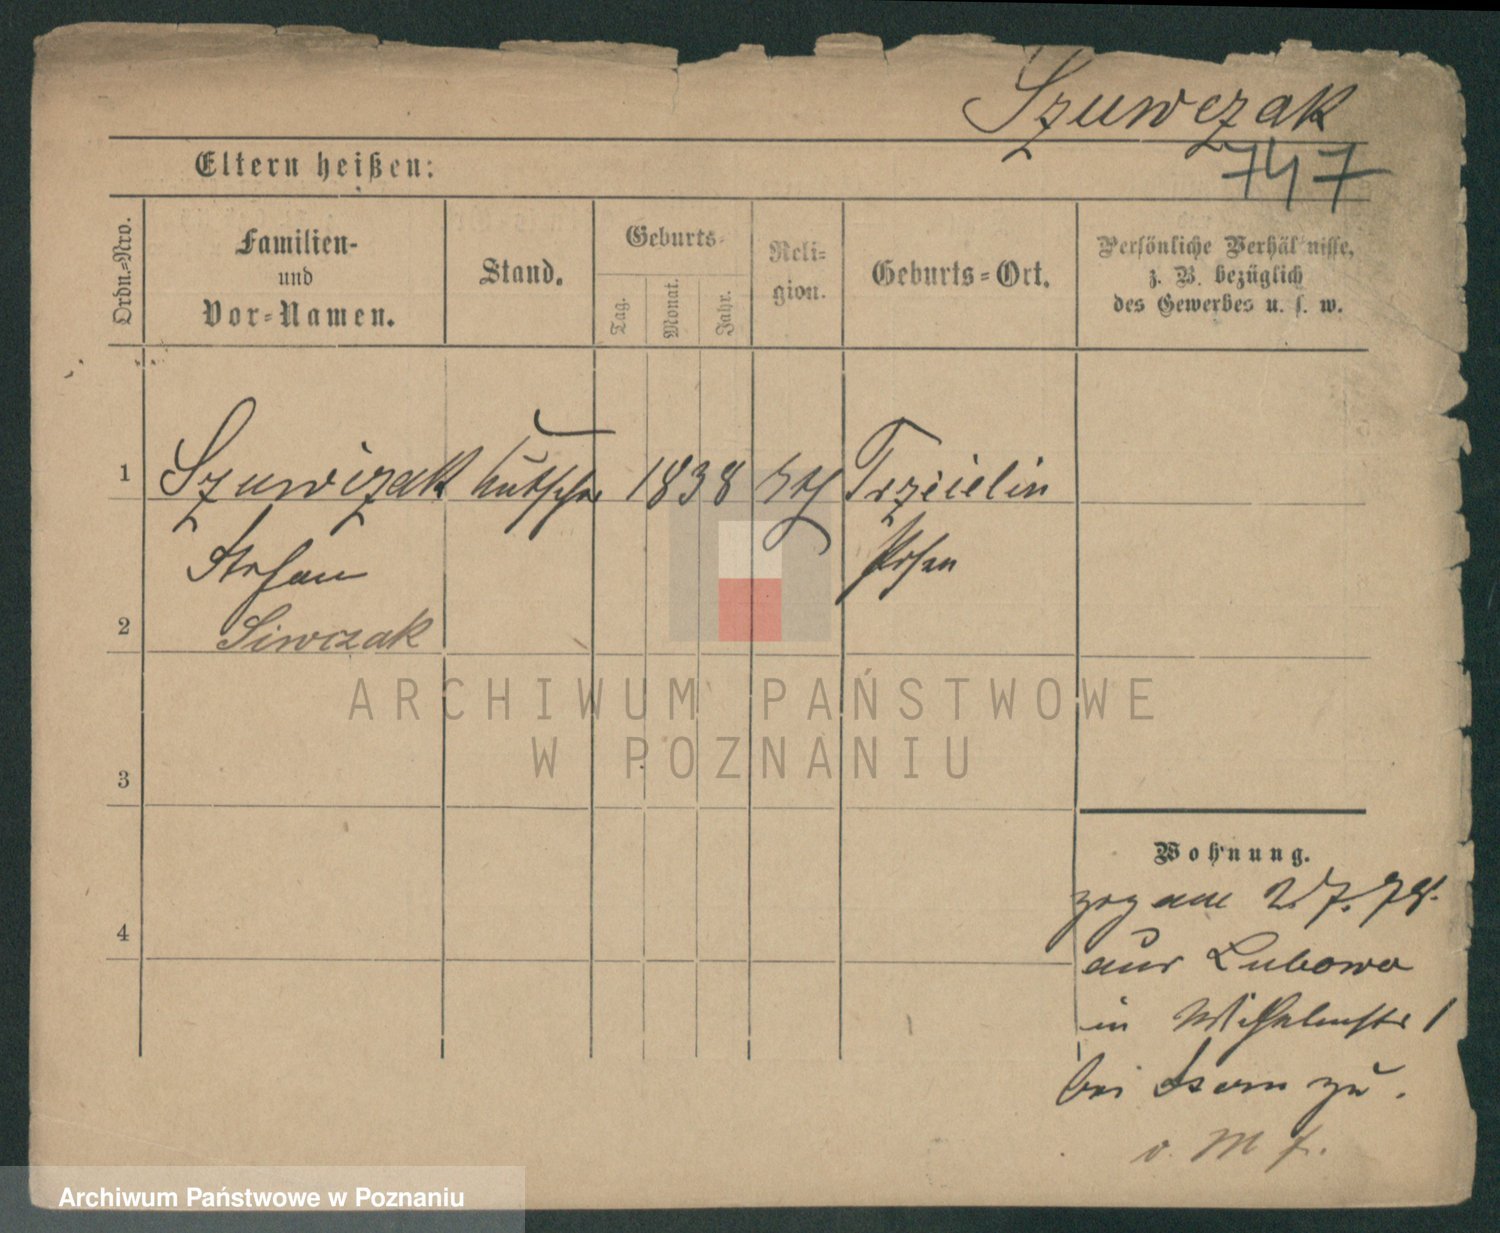 Szuwczak
747
Eltern heißen:
Ordn.-Nro.
Familien-
und
Vor-Namen.
Stand.
Geburts-
Tag.
Monat.
Jahr.
Reli-
gion.
Geburts-Ort.
Persönliche Verhältnisse,
z. B. bezüglich
des Gewerbes u. s. w.
1
Szuwczak
Kutscher
1838
Trzcielin
Stefan
Posen
2
Siwczak
3
4
Wohnung.
zog am 2.7.78.
aus Lubowo
in Wilhelmstr 1
bei zu.
v. M
ARCHIWUM PAŃSTWOWE
W POZNANIU
Archiwum Państwowe w Poznaniu